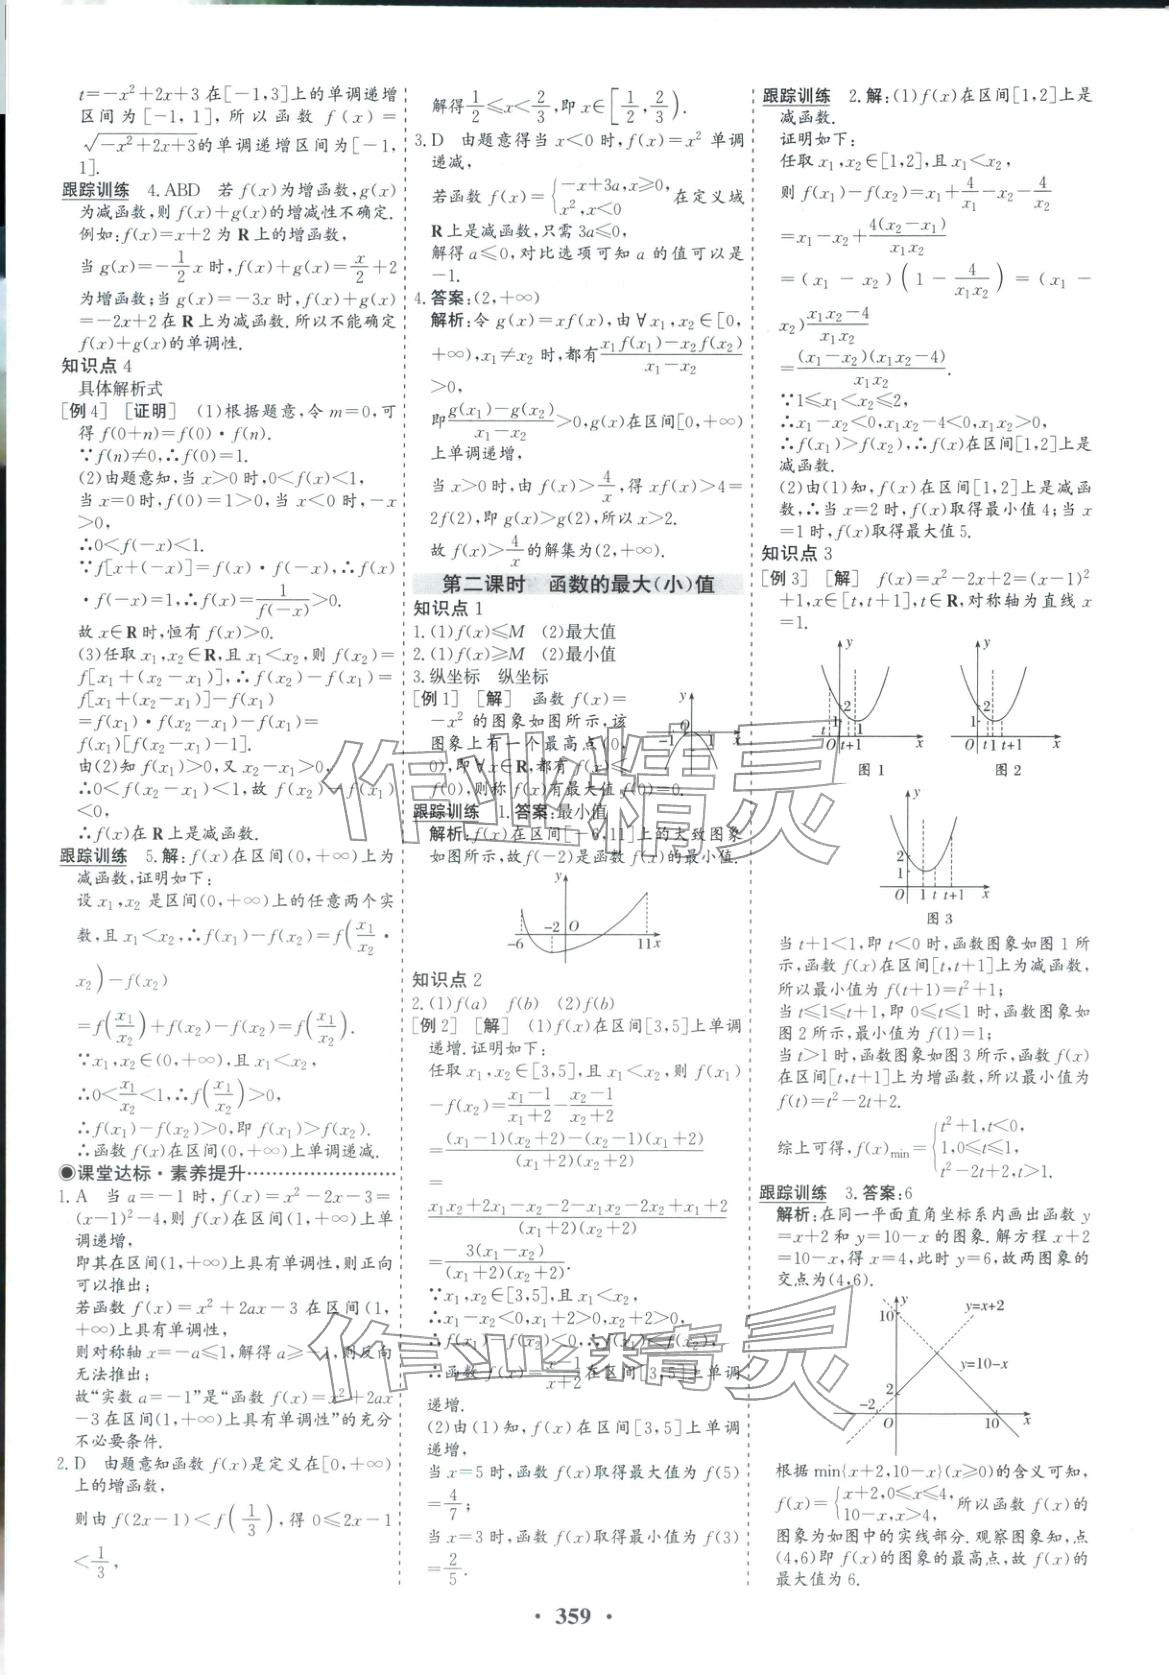 t=-x²+2x+3 在[-1,3]上的单调递增
区间为[-1,1],所以函数 f(x)=
√(-x²+2x+3)的单调递增区间为[-1,
1].
跟踪训练 4.ABD 若 f(x)为增函数,g(x)
为减函数,则 f(x)+g(x)的增减性不确定.
例如:f(x)=x+2为 R 上的增函数,
当 g(x)=-1/2 x 时,f(x)+g(x)=x/2+2
为增函数;当 g(x)=-3x 时,f(x)+g(x)
=-2x+2在 R 上为减函数.所以不能确定
f(x)+g(x)的单调性.
知识点 4
具体解析式
[例 4] [证明] (1)根据题意,令 m=0,可
得 f(0+n)=f(0)·f(n).
∵f(n)≠0,∴f(0)=1.
(2)由题意知,当 x>0 时,0<f(x)<1,
当 x=0 时,f(0)=1>0,当 x<0 时,-x
>0,
∴0<f(-x)<1.
∵f[x+(-x)]=f(x)·f(-x),∴f(x)
·f(-x)=1,∴f(x)=1/f(-x)>0.
故 x∈R 时,恒有 f(x)>0.
(3)任取 x₁,x₂∈R,且 x₁<x₂,则 f(x₂)=
f[x₁+(x₂-x₁)],∴f(x₂)-f(x₁)=
f[x₁+(x₂-x₁)]-f(x₁)
=f(x₁)·f(x₂-x₁)-f(x₁)=
f(x₁)[f(x₂-x₁)-1].
由(2)知 f(x₁)>0,又 x₂-x₁>0,
∴0<f(x₂-x₁)<1,故 f(x₂)-f(x₁)
<0,
∴f(x)在 R 上是减函数.
跟踪训练 5.解:f(x)在区间(0,+∞)上为
减函数,证明如下:
设 x₁,x₂ 是区间(0,+∞)上的任意两个实
数,且 x₁<x₂,∴f(x₁)-f(x₂)=f(x₁/x₂·
x₂)-f(x₂)
=f(x₁/x₂)+f(x₂)-f(x₂)=f(x₁/x₂).
∵x₁,x₂∈(0,+∞),且 x₁<x₂,
∴0<x₁/x₂<1,∴f(x₁/x₂)>0,
∴f(x₁)-f(x₂)>0,即 f(x₁)>f(x₂).
∴函数 f(x)在区间(0,+∞)上单调递减.
◉课堂达标·素养提升
1.A 当 a=-1 时,f(x)=x²-2x-3=
(x-1)²-4,则 f(x)在区间(1,+∞)上单
调递增,
即其在区间(1,+∞)上具有单调性,则正向
可以推出;
若函数 f(x)=x²+2ax-3 在区间(1,
+∞)上具有单调性,
则对称轴 x=-a≤1,解得 a≥-1,则反向
无法推出;
故“实数 a=-1”是“函数 f(x)=x²+2ax
-3在区间(1,+∞)上具有单调性”的充分
不必要条件.
2.D 由题意知函数 f(x)是定义在[0,+∞)
上的增函数,
则由 f(2x-1)<f(1/3),得 0≤2x-1
<1/3,
解得1/2≤x<2/3,即 x∈[1/2,2/3).
3.D 由题意得当 x<0 时,f(x)=x² 单调
递减,
若函数 f(x)={-x+3a,x≥0, x²,x<0 在定义域
R上是减函数,只需 3a≤0,
解得 a≤0,对比选项可知 a 的值可以是
-1.
4.答案:(2,+∞)
解析:令 g(x)=xf(x),由∀x₁,x₂∈[0,
+∞),x₁≠x₂ 时,都有(x₁f(x₁)-x₂f(x₂))/(x₁-x₂)
>0,
即(g(x₁)-g(x₂))/(x₁-x₂)>0,g(x)在区间[0,+∞)
上单调递增,
当 x>0 时,由 f(x)>4/x,得 xf(x)>4=
2f(2),即 g(x)>g(2),所以 x>2.
故 f(x)>4/x的解集为(2,+∞).
第二课时 函数的最大(小)值
知识点 1
1.(1)f(x)≤M (2)最大值
2.(1)f(x)≥M (2)最小值
3.纵坐标 纵坐标
[例 1] [解] 函数 f(x)=
-x² 的图象如图所示,该
图象上有一个最高点(0,
0),即∀x∈R,都有 f(x)≤
f(0),则称 f(x)有最大值 f(0)=0.
y
O
-1
1
x
跟踪训练 1.答案:最小值
解析:f(x)在区间[-6,11]上的大致图象
如图所示,故 f(-2)是函数 f(x)的最小值.
y
-2 O
-6
11 x
知识点 2
2.(1)f(a) f(b) (2)f(b)
[例 2] [解] (1)f(x)在区间[3,5]上单调
递增.证明如下:
任取 x₁,x₂∈[3,5],且 x₁<x₂,则 f(x₁)
-f(x₂)=(x₁-1)/(x₁+2)-(x₂-1)/(x₂+2)
=((x₁-1)(x₂+2)-(x₂-1)(x₁+2))/((x₁+2)(x₂+2))
=
(x₁x₂+2x₁-x₂-2-x₁x₂-2x₂+x₁+2)/((x₁+2)(x₂+2))
=3(x₁-x₂)/((x₁+2)(x₂+2)).
∵x₁,x₂∈[3,5],且 x₁<x₂,
∴x₁-x₂<0,x₁+2>0,x₂+2>0,
∴f(x₁)-f(x₂)<0,∴f(x₁)<f(x₂),
∴函数 f(x)=(x-1)/(x+2)在区间[3,5]上单调
递增.
(2)由(1)知,f(x)在区间[3,5]上单调
递增,
当 x=5 时,函数 f(x)取得最大值为 f(5)
=4/7;
当 x=3 时,函数 f(x)取得最小值为 f(3)
=2/5.
跟踪训练 2.解:(1)f(x)在区间[1,2]上是
减函数.
证明如下:
任取 x₁,x₂∈[1,2],且 x₁<x₂,
则 f(x₁)-f(x₂)=x₁+4/x₁-x₂-4/x₂
=x₁-x₂+4(x₂-x₁)/(x₁x₂)
=(x₁-x₂)(1-4/(x₁x₂))=(x₁-
x₂)(x₁x₂-4)/(x₁x₂)
=(x₁-x₂)(x₁x₂-4)/(x₁x₂).
∵1≤x₁<x₂≤2,
∴x₁-x₂<0,x₁x₂-4<0,x₁x₂>0,
∴f(x₁)>f(x₂),∴f(x)在区间[1,2]上是
减函数.
(2)由(1)知,f(x)在区间[1,2]上是减函
数,∴当 x=2 时,f(x)取得最小值 4;当 x
=1 时,f(x)取得最大值 5.
知识点 3
[例 3] [解] f(x)=x²-2x+2=(x-1)²
+1,x∈[t,t+1],t∈R,对称轴为直线 x
=1.
y
2
1
t O t+1 1 x
图 1
y
2
1
O t 1 t+1 x
图 2
y
2
1
O 1 t t+1 x
图 3
当 t+1<1,即 t<0 时,函数图象如图 1 所
示,函数 f(x)在区间[t,t+1]上为减函数,
所以最小值为 f(t+1)=t²+1;
当 t≤1≤t+1,即 0≤t≤1 时,函数图象如
图 2 所示,最小值为 f(1)=1;
当 t>1 时,函数图象如图 3 所示,函数 f(x)
在区间[t,t+1]上为增函数,所以最小值为
f(t)=t²-2t+2.
综上可得,f(x)min={t²+1,t<0, 1,0≤t≤1, t²-2t+2,t>1.
跟踪训练 3.答案:6
解析:在同一平面直角坐标系内画出函数 y
=x+2 和 y=10-x 的图象.解方程 x+2
=10-x,得 x=4,此时 y=6,故两图象的
交点为(4,6).
y
10
y=x+2
y=10-x
2
-2
O
10 x
根据 min{x+2,10-x}(x≥0)的含义可知,
f(x)={x+2,0≤x≤4, 10-x,x>4, 所以函数 f(x)的
图象为如图中的实线部分.观察图象知,点
(4,6)即 f(x)的图象的最高点,故 f(x)的
最大值为 6.
作业精灵
作业精灵
· 359 ·